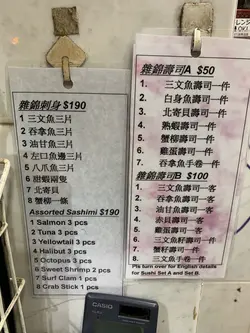 雜錦刺身 $190
1 三文魚三片
2 吞拿魚三片
3 油甘魚三片
4 左口魚邊三片
5 八爪魚三片
6 甜蝦兩隻
7 北寄貝
8 蟹柳一條
Assorted Sashimi $190
1 Salmon 3 pcs
2 Tuna 3 pcs
3 Yellowtail 3 pcs
4 Halibut 3 pcs
5 Octopus 3 pcs
6 Sweet Shrimp 2 pcs
7 Surf Clam 1 pcs
8 Crab Stick 1 pcs
雜錦壽司A $50
1. 三文魚壽司一件
2. 白身魚壽司一件
3. 北寄貝壽司一件
4. 熟蝦壽司一件
5. 蟹柳壽司一件
6. 雞蛋壽司一件
7. 吞拿魚手卷一件
雜錦壽司B $100
1. 三文魚壽司一客
2. 吞拿魚壽司一客
3. 油甘魚壽司一客
4. 赤貝壽司一客
5. 雞蛋壽司一客
6. 三文魚籽壽司一件
7. 蟹籽壽司一件
8. 三文魚手卷一件
Pls turn over for English details
for Sushi Set A and Set B.
CASIO